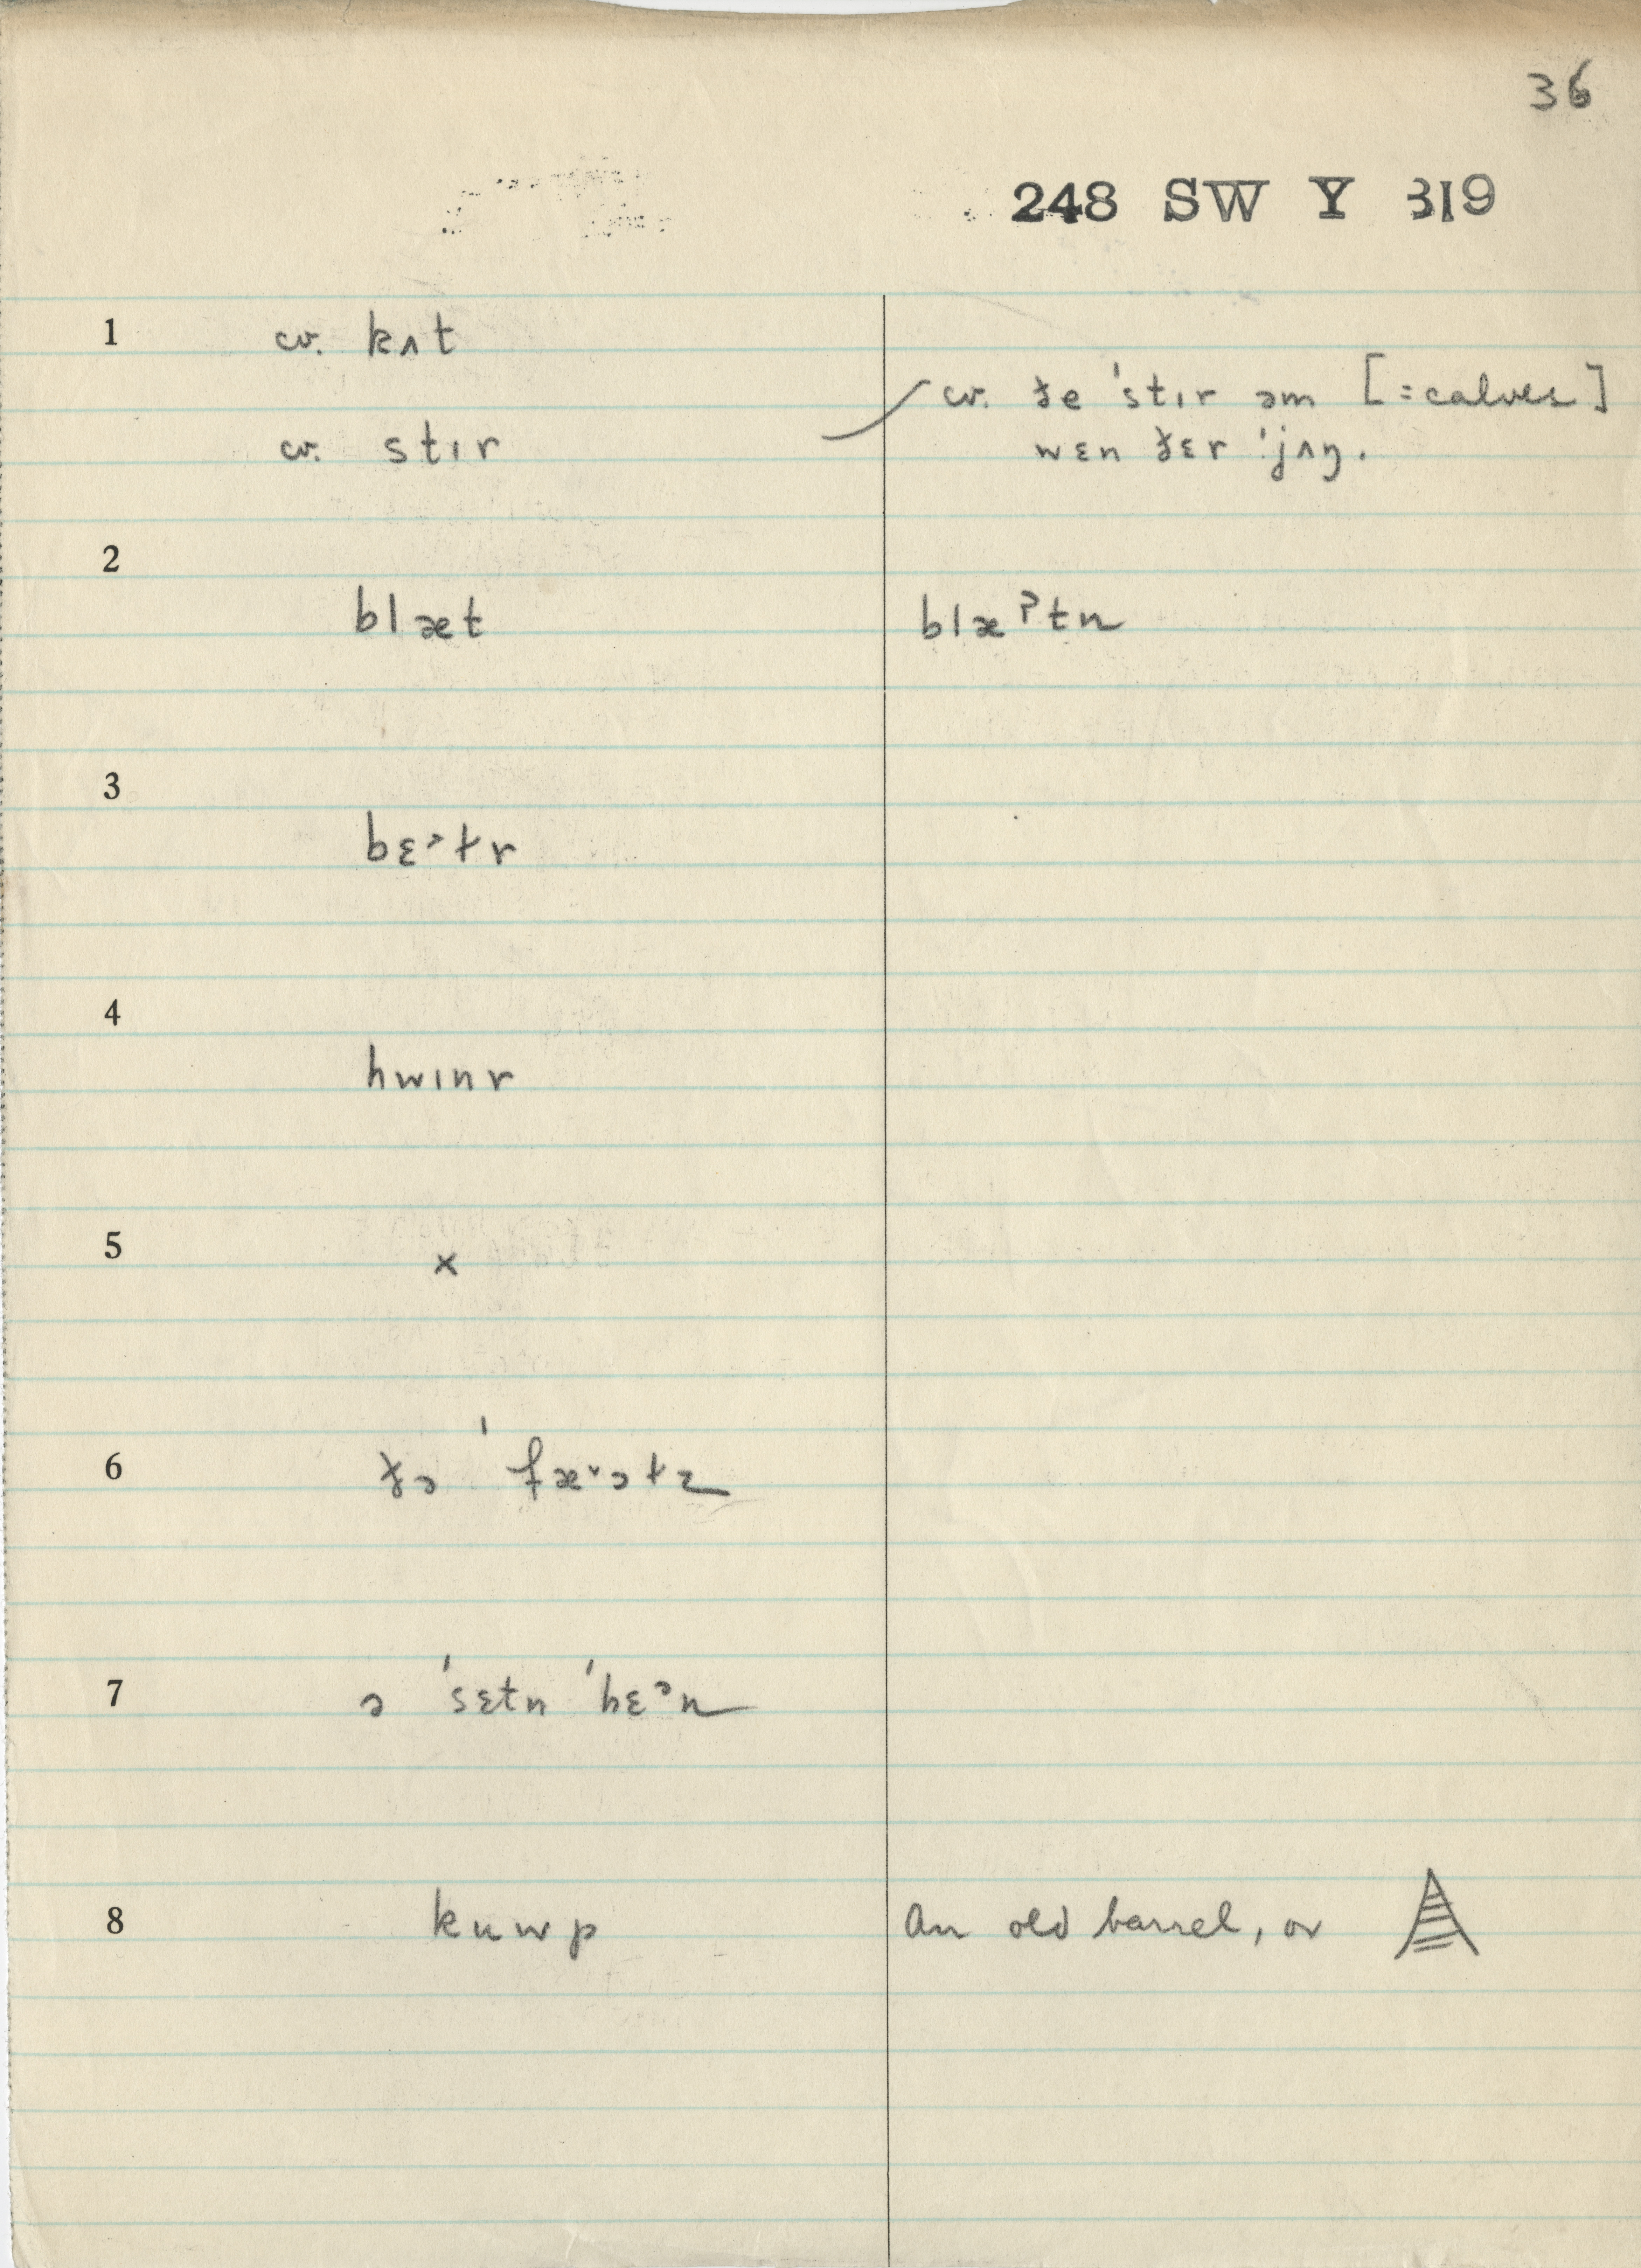 36
248 SW Y 319
1 cv. kʌt
cv. ðe ˈstɪr əm [=calves]
cv. stɪr
wɛn ðɛr ˈjʌŋ.
2
blæt blæˀtn
3
bɛ˃t̬r
4
hwɪnr
5 ×
6 ðə ˈfæ˅ət̬z
7 ə ˈsɛtn ˈhɛᵊn
8 kuwp An old barrel, or